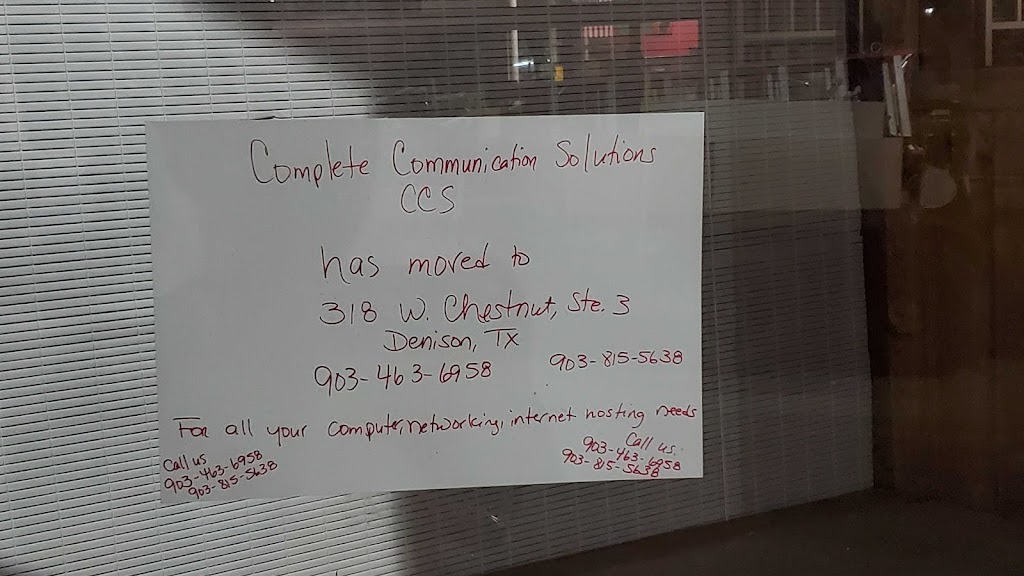 Complete Communication Solutions
CCS
has moved to
318 W. Chestnut, Ste. 3
Denison, TX
903-463-6958 903-815-5638
For all your computer, networking, internet hosting needs
Call us
903-463-6958
903-815-5638
Call us
903-463-6958
903-815-5638